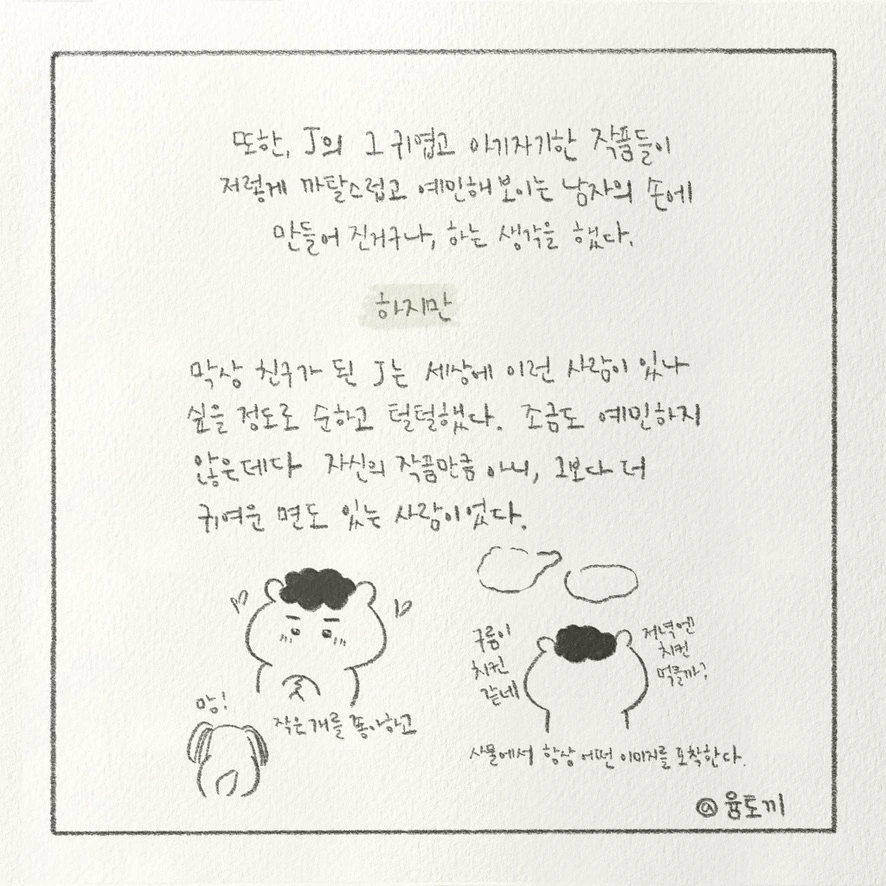 또한, J의 그 귀엽고 아기자기한 작품들이
저렇게 까탈스럽고 예민해 보이는 남자의 손에
만들어 진거구나, 하는 생각을 했다.
하지만
막상 친구가 된 J는 세상에 이런 사람이 있나
싶을 정도로 순하고 털털했다. 조금도 예민하지
않은데다 자신의 작품만큼 아니, 그보다 더
귀여운 면도 있는 사람이었다.
구름이
치킨
같네
저녁엔
치킨
먹을까?
맘!
작은 개를 좋아하고
사물에서 항상 어떤 이미지를 포착한다.
@윰토끼